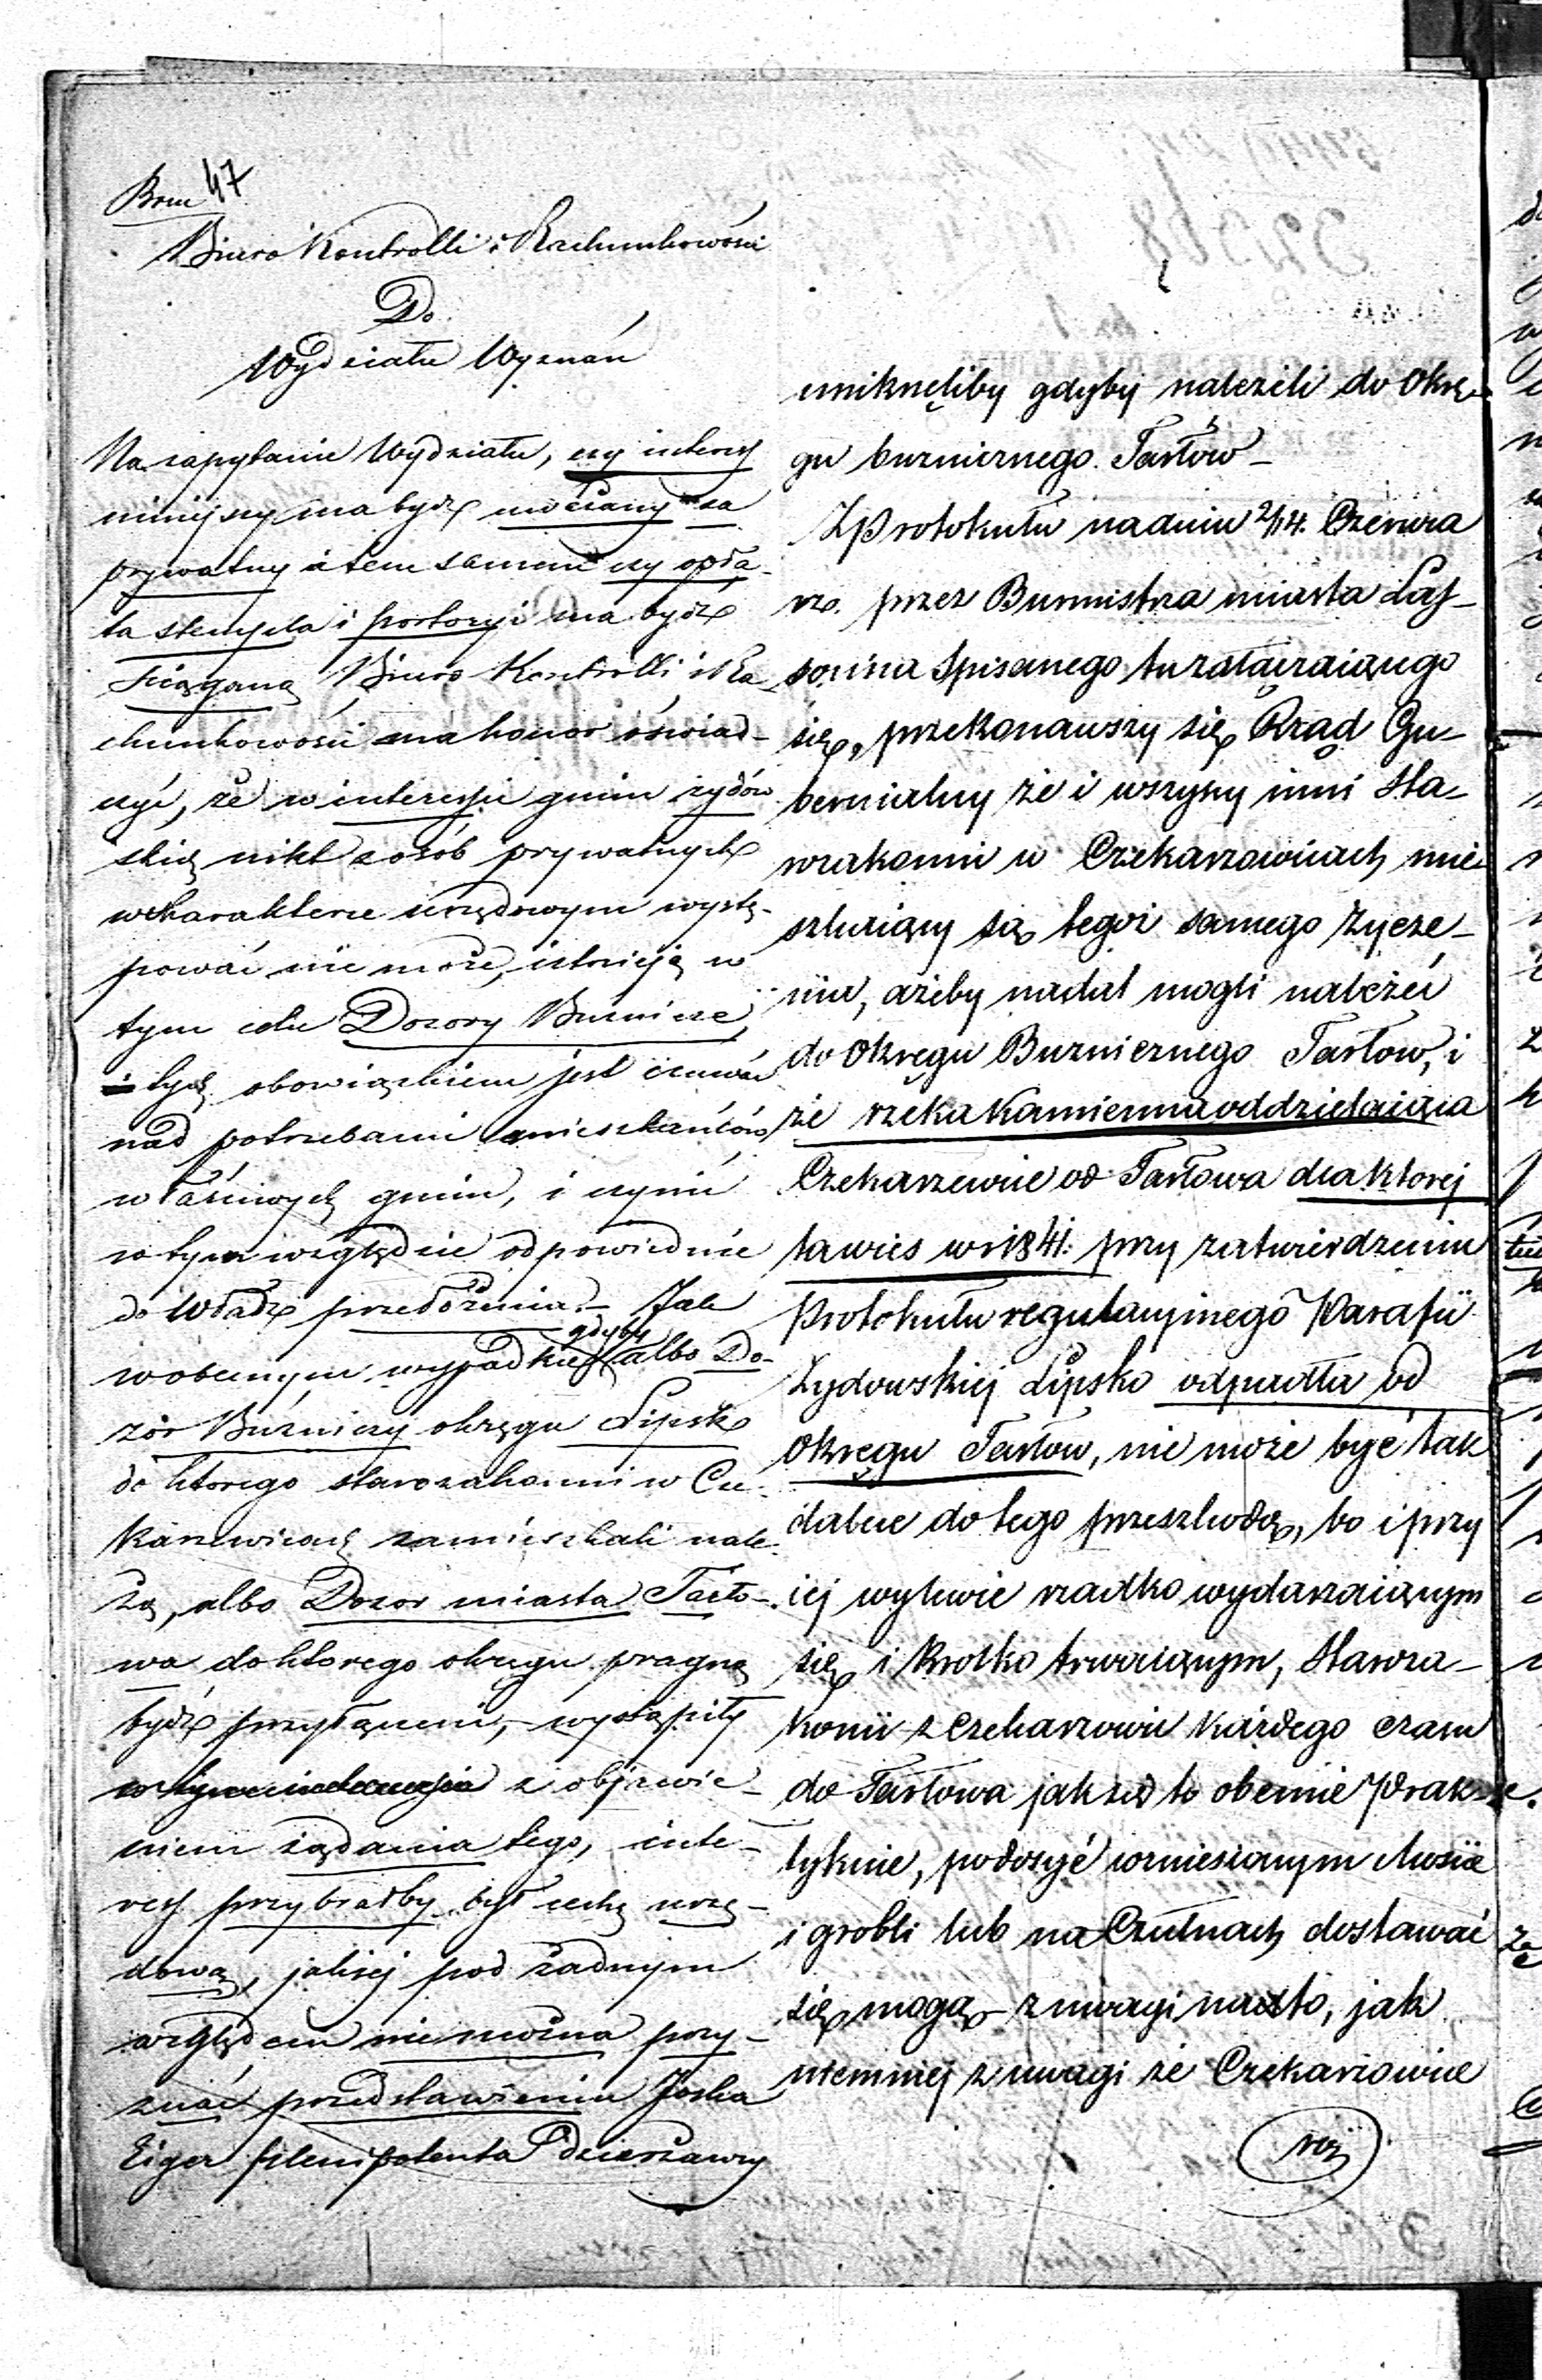 Brm 47
Biuro Kontrolli i Rachunkowości
Do
Wydziału Wyznań
Na zapytanie Wydziału, czy interes
niniejszy ma bydź uważany za
prywatny a tem samem czy opła-
ta stempla i portoryi ma bydź
ściągana, Biuro Kontrolli i Ra-
chunkowości ma honor oświad-
czyć, że w interessie gmin żydow-
skich nikt z osób prywatnych
w charakterze urzędowym wystę-
pować nie może, istnieją w
tym celu Dozory Bużnicze,
tych obowiązkiem jest czuwać
nad potrzebami mieszkańców
właściwych gmin, i czynić
w tym względzie odpowiednie
do Władz przedłożenia. – Jak
gdyby
w obecnym wypadku albo Do-
zór Bużniczy okręgu Lipsk
do ktorego starozakonni w Cze-
karzewicach zamieszkali nale-
żą, albo Dozor miasta Tarło-
wa do ktorego okręgu pragną
bydź przyłączeni, – wystąpiły
w tym interessie z objawie-
niem żądania tego, inte-
res przybrałby cechę urzę-
dową, jakiej pod żadnym
względem nie można przy-
znać przedstawieniu Joska
Eiger plenipotenta Dzierżawcy
uniknęliby gdyby należeli do Okrę-
gu bużnicznego Tarłów –
Z Protokułu na dniu 2/14. Czerwca
rb. przez Burmistrza miasta
spisanego tu załączaiącego
się, przekonawszy się Rząd Gu-
bernialny że i wszyscy inni Sta-
rozakonni w Czekarzowicach mie-
szkaiący są tegoż samego życze-
nia, ażeby nadal mogli należeć
do Okręgu Bużnicznego Tarłow, i
że rzeka Kamienna oddzielaiąca
Czekarzewice od Tarłowa dla ktorej
ta wieś w r 1841. przy zatwierdzeniu
Protokułu regulacyjnego Parafii
Żydowskiej Lipsko odpadła od
Okręgu Tarłow, nie może być tak
dalece do tego przeszkodą, bo i przy
iej wylewie rzadko wydarzaiącym
się i krotko trwaiącym, Staroza-
konni z Czekarzowic każdego czasu
do Tarłowa jak się to obecnie Prak-
tykuie, podosyć wzniesionym Moście
i grobli lub na Czułnach dostawać
się mogą – z uwagi nad to, jak
niemniej z uwagi że Czekarzowice